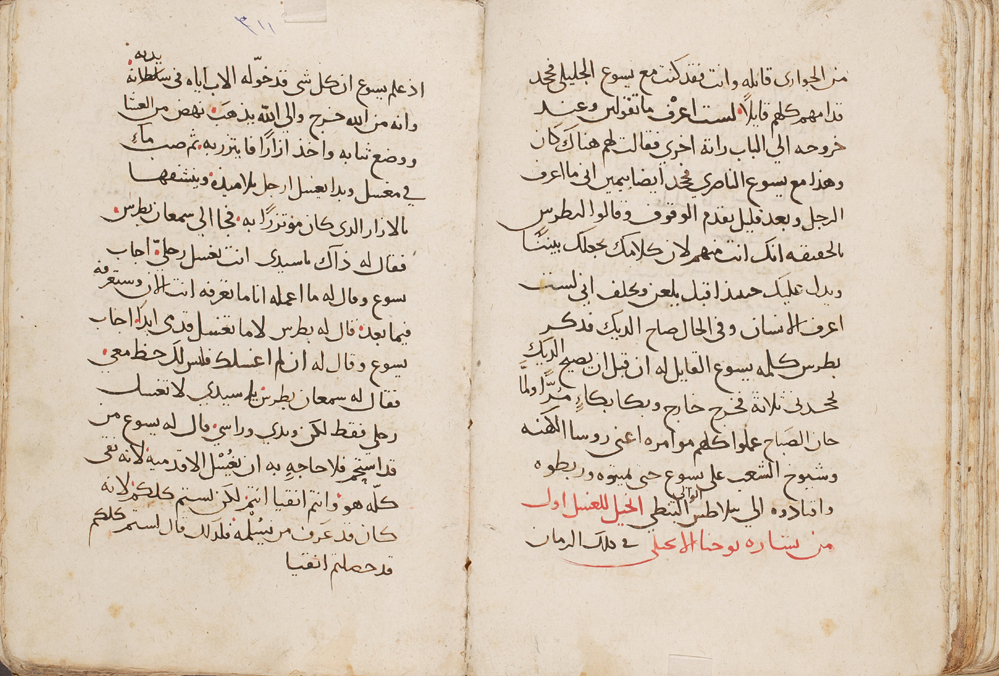 من الجواري قايله وانت فقد كنت مع يسوع الجليلي فجحد
قدامهم كلهم قايلا لست اعرف ما تقولين وعند
خروجه الي الباب راته اخري فقالت لهم هناك كان
وهذا مع يسوع الناصري فجحد ايضا بيمين اني ما اعرف
الرجل وبعد قليل تقدم الوقوف وقالوا لبطرس
بالحقيقه انك انت منهم لان كلامك يجعلك بينًا
وبدل عليك حينيذ اقبل يلعن ويحلف اني لست
اعرف الانسان وفي الحال صاح الديك فذكر
بطرس كلمه يسوع القايل له ان قبل ان يصيح الديك
تجحدني ثلاثة فخرج خارج وبكا بكاءٍ مُرًّا ولمَّا
حان الصَباح عملوا كلهم موامره اعني روسا الكهنه
وشيوخ الشعب علي يسوع حتي يميتوه وربطوه
واقتادوه الي بيلاطس البنطي الوالي الانجيل للغسل اول
من بشاره يوحنا الانجيلي في ذلك الزمان
٣١١
اذ علم يسوع ان كل شي قد خوّله الاب اياه في سلطانة يديه
وانه من الله خرج والي الله يذهبَ نهض من العشا
ووضع ثيابه واخذ ازارًا فايتزر به ثم صب ماءٍ
في مغسل وبدا يغسل ارجل تلاميذه وينشفها
بالازار الذي كان موتزرًا به فجا الي سمعان بطرس
فقال له ذاك يا سيدي انت تغسل رجليّ اجاب
يسوع وقال له ما اعمله انا ما تعرفه انت الان وستعرفه
فيما بعد قال له بطرس لا ما تغسل قدمي ابدًا اجاب
يسوع وقال له ان لم اغسلك فليس لك حظ معي
فقال له سمعان بطرس يا سيدي لا تغسل
رجلي فقط لكن ويدي وراسي قال له يسوع من
قد استحم فلا حاجهٍ به ان يغسل الا قدميه لانه نقي
كله هو وانتم انقيا انتم لكن لستم كلكم لانه
كان قد عَرف من يسلمه فلذلك قال لستم كلكم
قد حصلتم انقيا